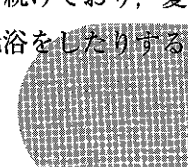 続けており，夏
浴をしたりする